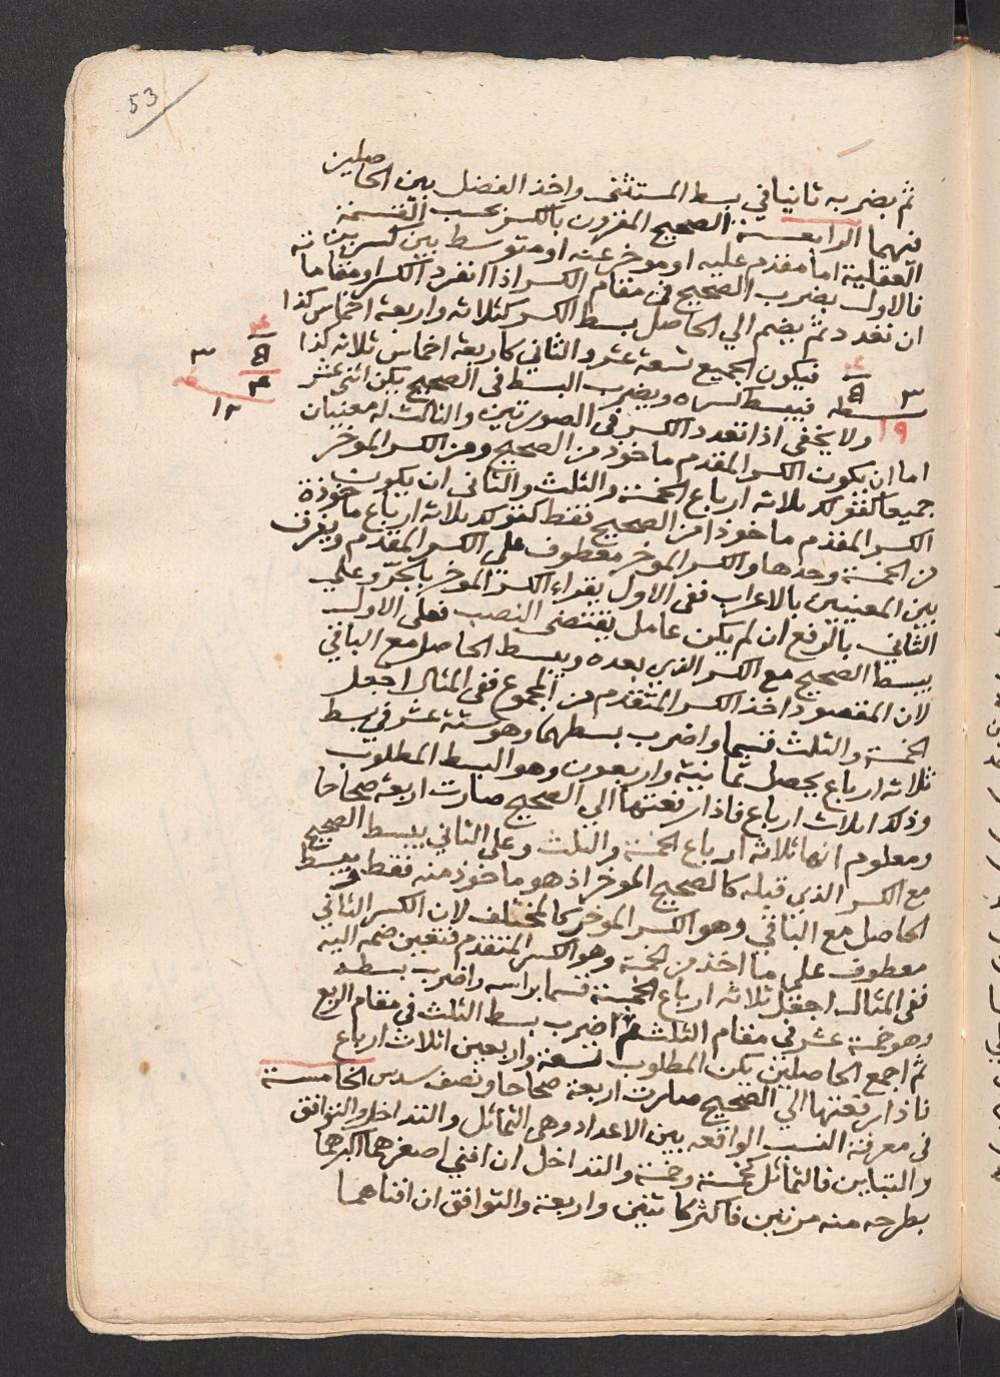 53
ثم يضربه ثانيا في بسط المستثنى واخذ الفضل بين الحاصلين
فيهما الرابعـــة الصحيح المقرون بالكسر بحسب القسمة
العقلية اما مقدم عليه او موخر عنه او متوسط بين كسرين
فالاول يضرب الصحيح في مقام الكسر اذا انفرد الكسر او مقاماته
ان تعدد ثم يضم الي الحاصل بسط الكسر كثلاثه واربعة اخماس كذا
٣ ٤/٥ فيكون الجميع تسعة عشر والثاني كاربعة اخماس ثلاثه كذا ٤/٥ ٣
١٩ بسطه فيبسط كسراه ويضرب البسط في الصحيح يكن اثني عشر ٤ ١٢
ولا يخفى اذا تعدد الكسر في الصورتين والثالث له معنيان
اما ان يكون الكسر المقدم ماخوذ من الصحيح ومن الكسر الموخر
جميعا كقولك ثلاثه ارباع الخمسة والثلث والثاني ان يكون
الكسر المقدم ماخوذا من الصحيح فقط كقولك ثلاثه ارباع ماخوذة
من الخمسة وحدها والكسر الموخر معطوف على الكسر المقدم ويفرق
بين المعنيين بالاعراب ففي الاول يقراء الكسر الموخر بالجر وعلي
الثاني بالرفع ان لم يكن عامل يقتضى النصب فعلى الاول
يبسط الصحيح مع الكسر الذي بعده ويبسط الحاصل مع الباقي
لان المقصود اخذ الكسر المتقدم من المجموع ففي المثال اجعل
الخمسة والثلث قسما واضرب بسطهما وهو ستة عشر في بسط
ثلاثه ارباع يحصل ثمانية واربعون وهو البسط المطلوب
وذلك اثلاث ارباع فاذا رفعتها الي الصحيح صارت اربعة صحاحا
ومعلوم انها ثلاثه ارباع الخمسة والثلث وعلى الثاني يبسط الصحيح
مع الكسر الذي قبله كالصحيح الموخر اذ هو ماخوذ منه فقط ويبسط
الحاصل مع الباقي وهو الكسر الموخر كالمختلف لان الكسر الثاني
معطوف على ما اخذ من الخمسة وهو الكسر المتقدم فتعين ضمه اليه
ففي المثال اجعل ثلاثه ارباع الخمسة قسما براسه واضرب بسطه
وهو خمسة عشر في مقام الثلث ثم اضرب بسط الثلث في مقام الربع
ثم اجمع الحاصلين يكن المطلوب تسعة واربعين اثلاث ارباع
فاذا رفعتها الي الصحيح صارت اربعة صحاحا ونصف سدس الخامسة
في معرفة النسب الواقعه بين الاعداد وهي التماثل والتداخل والتوافق
والتباين فالتماثل كخمسة وخمسة والتداخل ان افني اصغرهما اكبرهما
بطرحه منه مرتين فاكثر كاثنين واربعة والتوافق ان افناهما